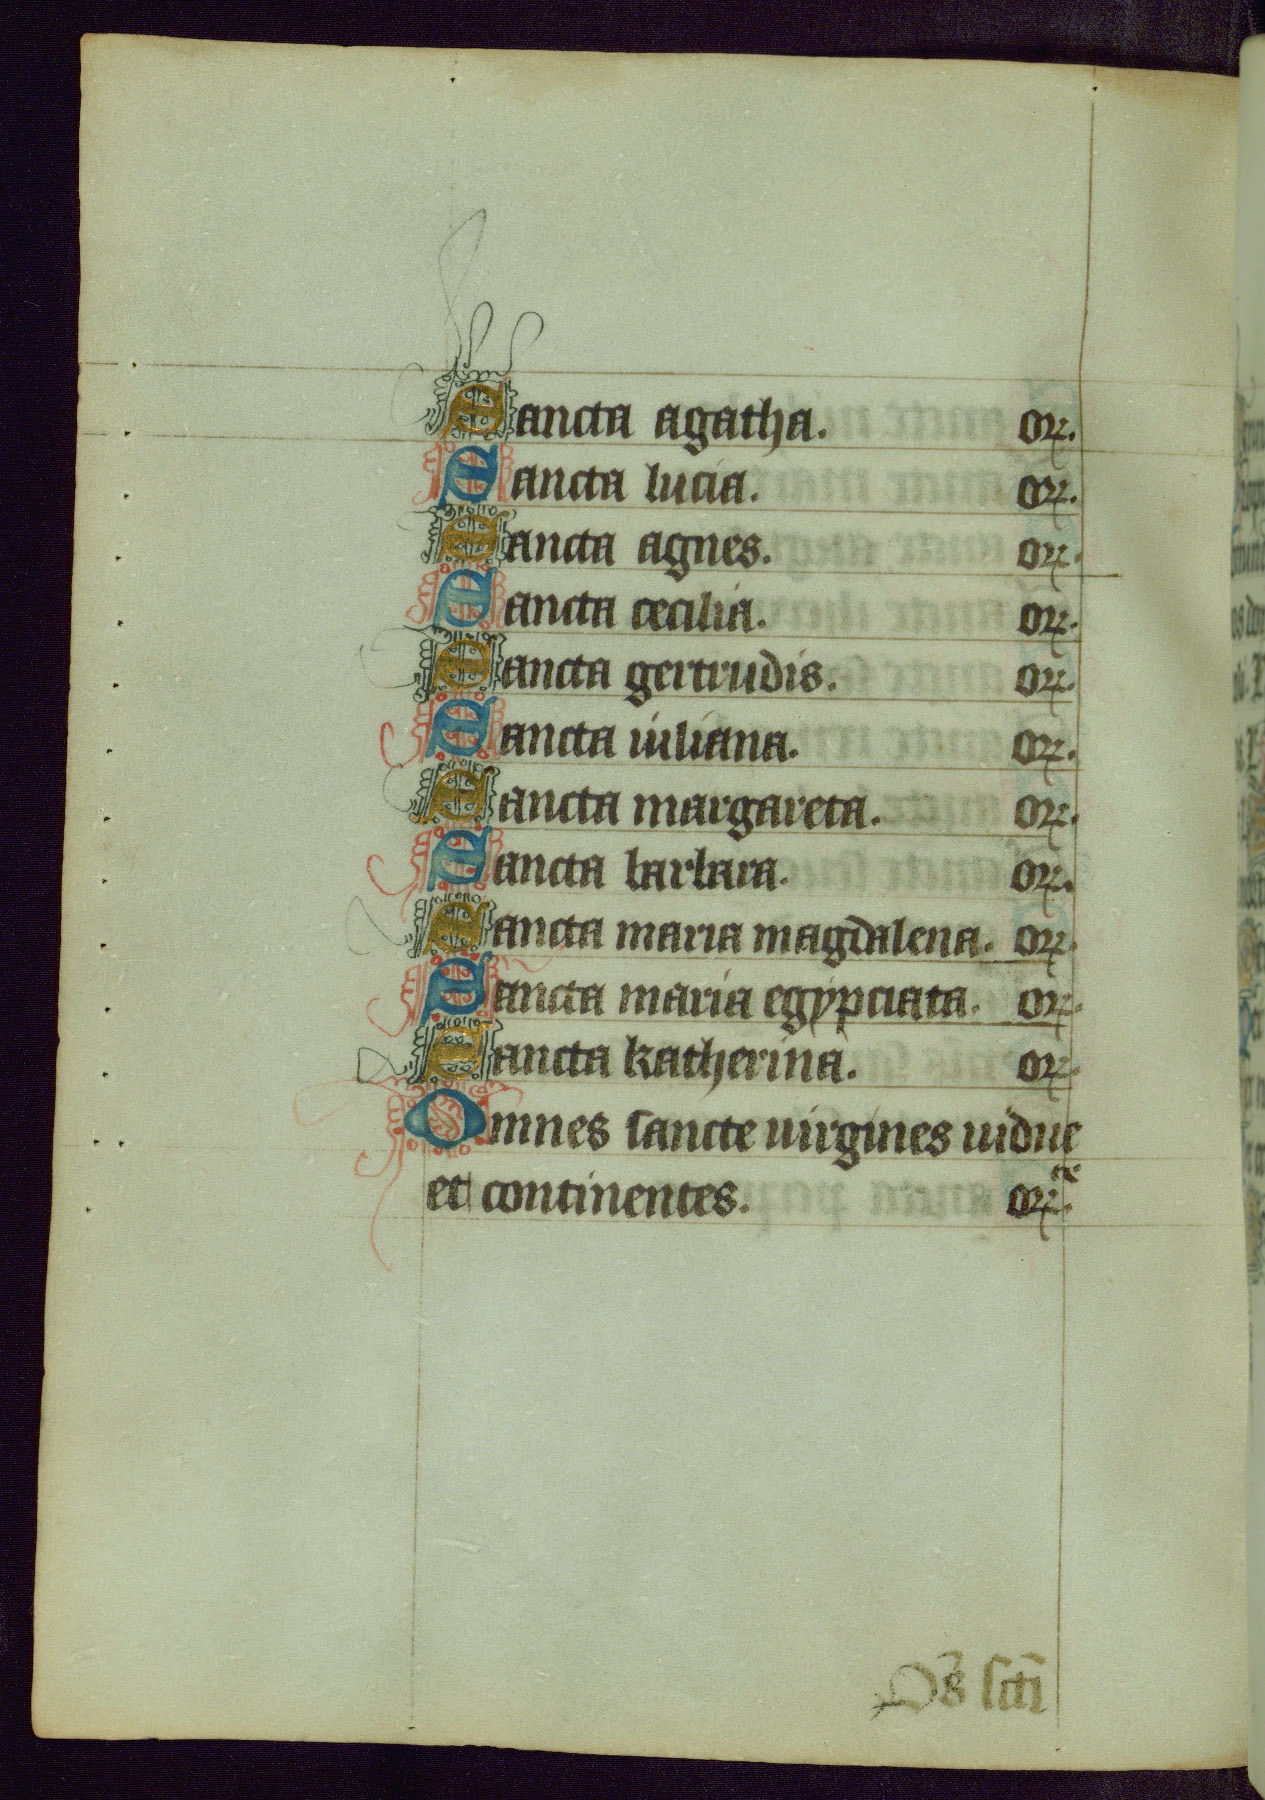 Sancta agatha. or.
Sancta lucia. or.
Sancta agnes. or.
Sancta cecilia. or.
Sancta gertrudis. or.
Sancta iuliana. or.
Sancta margareta. or.
Sancta barbara. or.
Sancta maria magdalena. or.
Sancta maria egypciata. or.
Sancta katherina. or.
Omnes sancte uirgines uidue
et continentes. or.te
Oēs sc̄ti